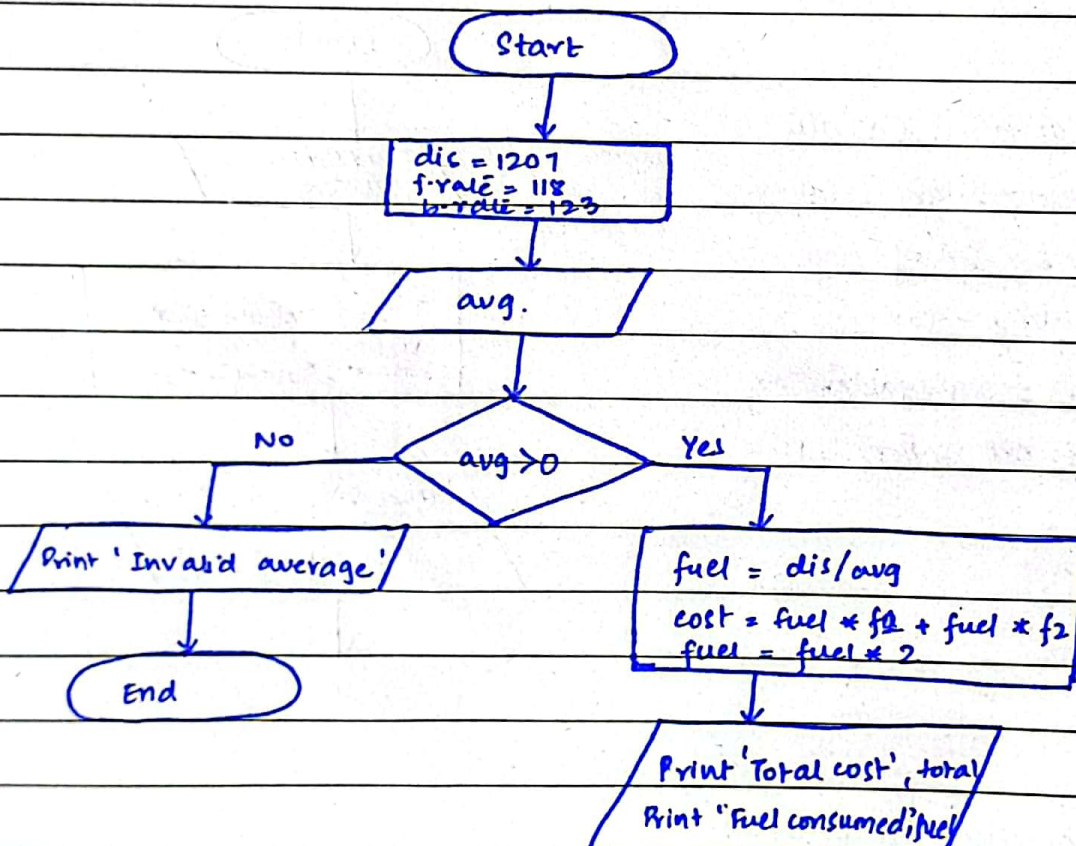 Start
dis = 1207
f-rate = 118
b-rate = 123
avg.
avg>0
No
Yes
Print 'Invalid average'
End
fuel = dis/avg
cost = fuel * f1 + fuel * f2
fuel = fuel * 2
Print 'Total cost', total
Print "Fuel consumed", fuel